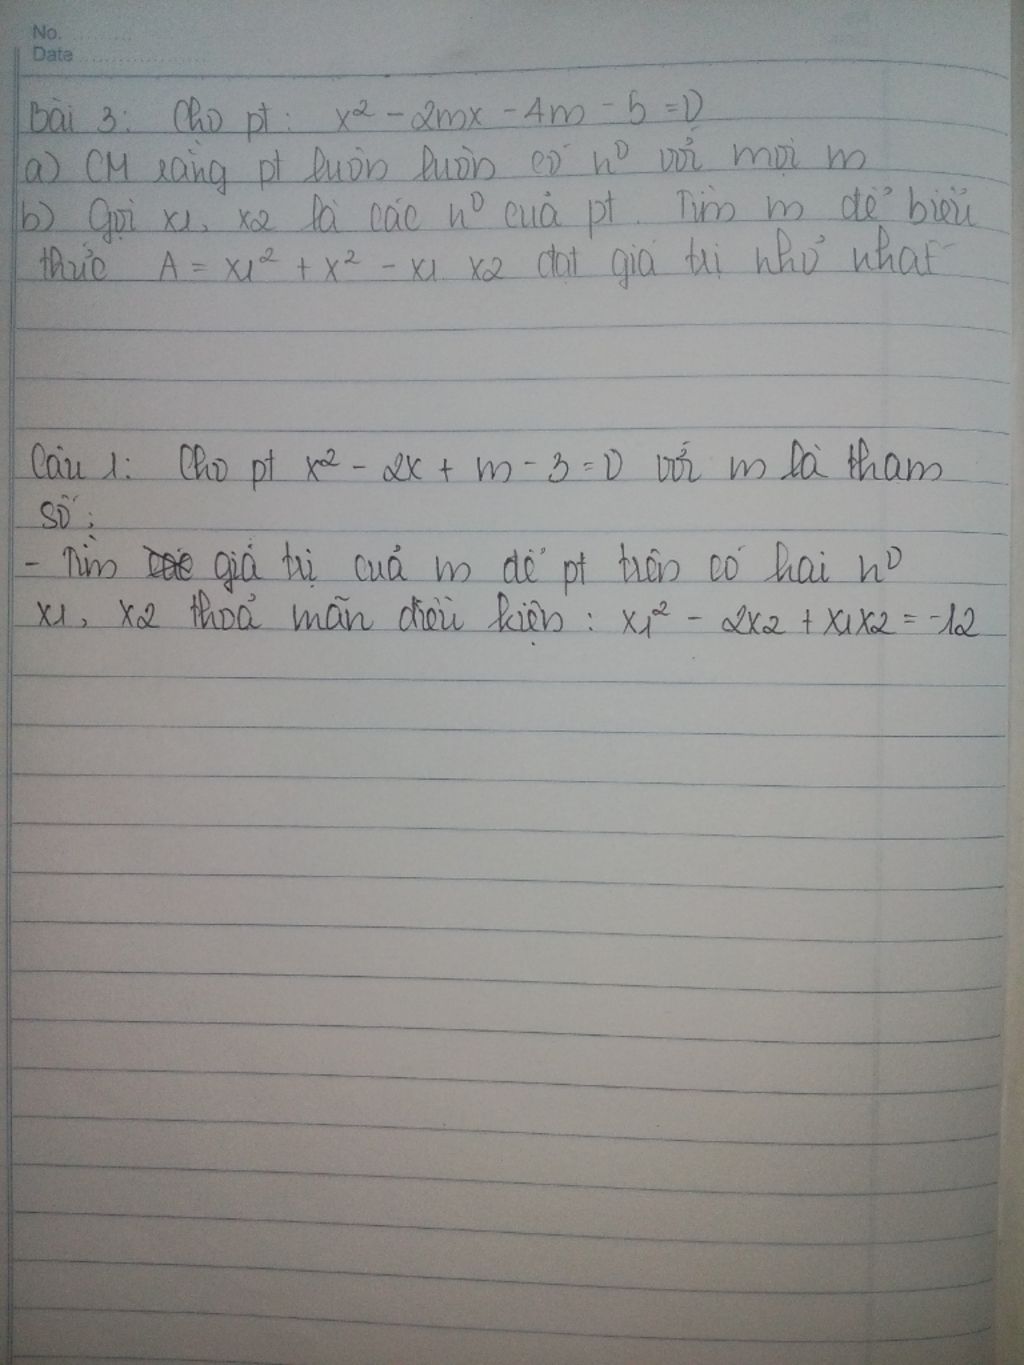 No.
Date
Bài 3: Cho pt: x² - 2mx - 4m - 5 = 0
a) CM rằng pt luôn luôn có n⁰ với mọi m
b) Gọi x1, x2 là các n⁰ cuả pt. Tìm m để biểu
thức A = x1² + x² - x1 x2 đạt giá trị nhỏ nhất
Câu 1: Cho pt x² - 2x + m - 3 = 0 với m là tham
số:
- Tìm giá trị cuả m để pt trên có hai n⁰
x1, x2 thoả mãn điều kiện: x1² - 2x2 + x1x2 = -12